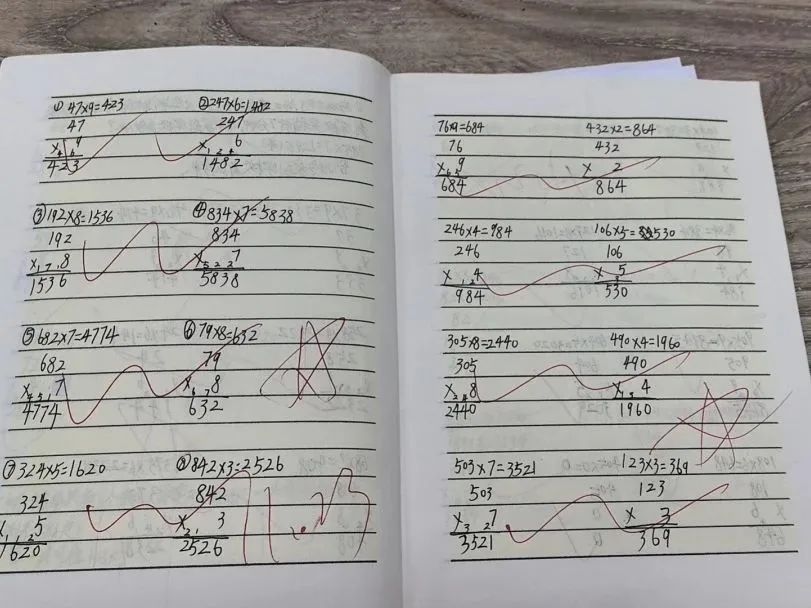 ① 47×9=423 ②247×6=1482
47 247
× 9 × 6
423 1482
③192×8=1536 ④834×7=5838
192 834
× 8 × 7
1536 5838
⑤682×7=4774 ⑥79×8=632
682 79
× 7 × 8
4774 632
⑦324×5=1620 ⑧842×3=2526
324 842
× 5 × 3
1620 2526
11.23
76×9=684 432×2=864
76 432
× 9 × 2
684 864
246×4=984 106×5=530
246 106
× 4 × 5
984 530
305×8=2440 490×4=1960
305 490
× 8 × 4
2440 1960
503×7=3521 123×3=369
503 123
× 7 × 3
3521 369